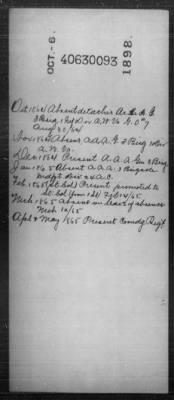 OCT.-6.
40630093
1898.
Oct 1864 Absent detached A.A.A.G
3 Brig 1 Div A.W.Va G.O. #7
Aug 30/64
Nov 1864 Absent A.A.A.G. 3 Brig 1 Div
A.W. Va.
Dec 1864 Present A.A.A Gen 3 Brig
Jan 1865 Absent A.A.A. 1 Brigade
Indpt Div 24 A.C.
Feb. 1865 (Lt Col) Present promoted to
Lt. Col from 1 Lt Feb 14/65
Mch 1865 absent on leave of absence
Mch 10/65
Apl & May 1865 Present Comdg Regt